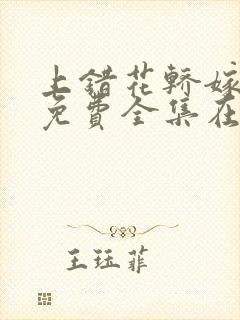 上错花轿嫁
免費全集在
王珏菲